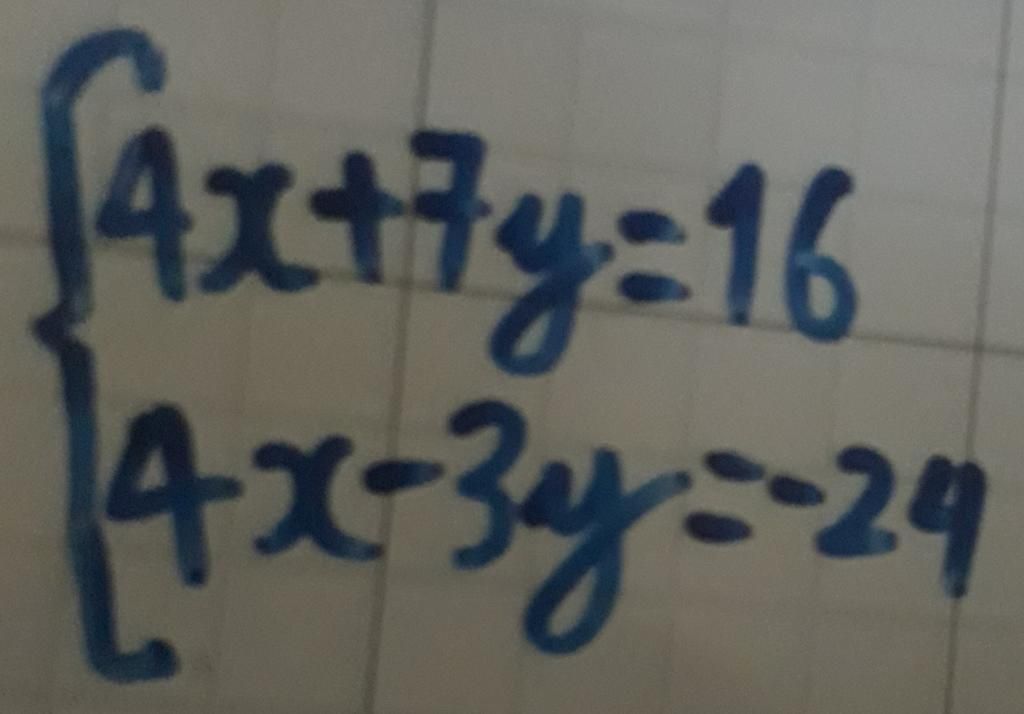 4x+7y=16
4x-3y=-24